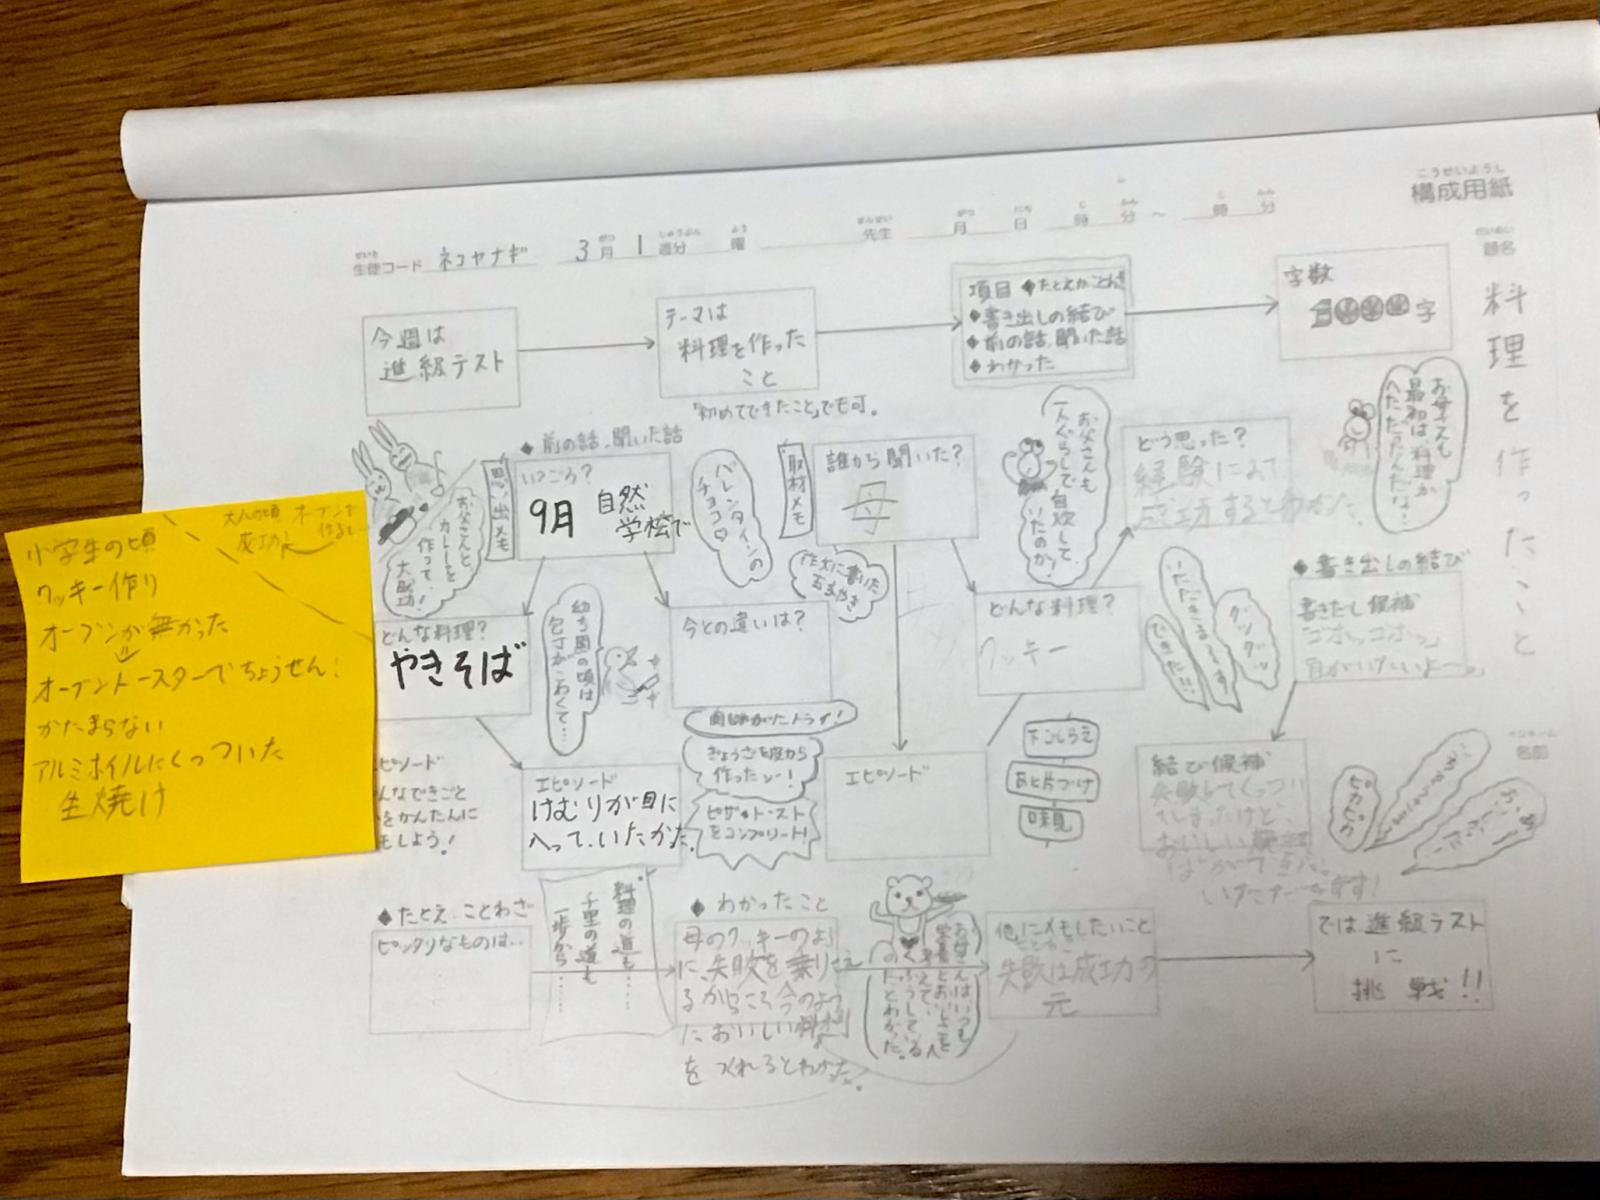 構成用紙
こうせいようし
生徒コード ネコヤナギ 3月1週分 曜 先生 月 日 時 分 ～ 時 分
題名
料理を作ったこと
今週は
進級テスト
テーマは
料理を作った
こと
「初めてできたこと」でも可。
項目 ◆たとえかことわざ
◆書き出しの結び
◆前の話、聞いた話
◆わかった
字数
字
◆前の話、聞いた話
思い出メモ
いつごろ?
9月 自然
学校で
お父さんと、
カレーを
作って
大成功!
バレンタインの
チョコ♡
取材メモ
誰から聞いた?
母
お父さんも
一人ぐらしで自炊して
いたのか!
どう思った?
経験によって
成功するとわかった
お母さんも
最初は、料理が
へただったんだな…
どんな料理?
やきそば
幼ち園の頃は
包丁がこわくて…
今との違いは?
作文に書いた
玉子やき
どんな料理?
クッキー
いただきまーす
グツグツ
できた!!
◆書き出しの結び
書きだし候補
「ゴホッゴホッ」
目がいたいよ～。
エピソード
けむりが目に
入って、いたかった。
肉じゃがにトライ!
ぎょうざを皮から
作ったゾー!
ピザトーストを
コンプリート!
エピソード
下ごしらえ
あと片づけ
味見
結び候補
失敗してくっつい
てしまったけど、
おいしい
ピカピカ
名前
ピソード
んなできごと
をかんたんに
モしよう!
◆たとえ、ことわざ
ピッタリなものは…
料理の道も……
千里の道も
一歩から……
◆わかったこと
母のクッキーのよう
に、失敗を乗りこえ
るからこそ今のよう
においしい料理
をつくれるとわかった。
お母さんはいつも
栄養とおいしさを
考えて、
くふうしている人
なのだとわかった。
他にメモしたいこと
ことわざ
失敗は成功の
元
では進級テスト
に
挑戦!!
小学生の頃
クッキー作り
オーブンが無かった
オーブントースターでちょうせん!
かたまらない
アルミホイルにくっついた
生焼け
大人の頃 オーブンで
作ると…
成功